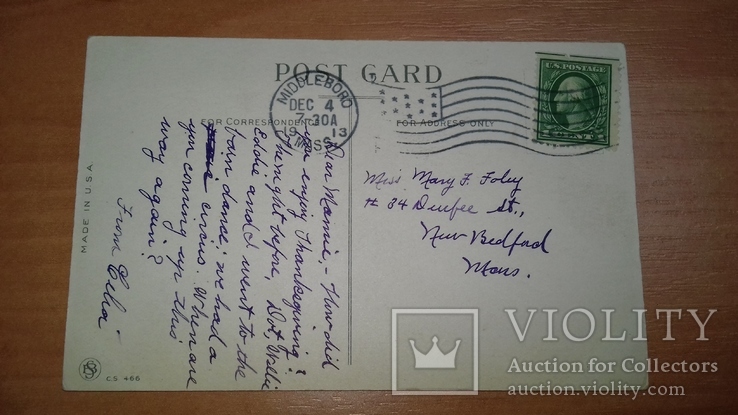 POST CARD
MIDDLEBORO
DEC 4
7-30A
1913
MASS.
U.S. POSTAGE
CENT
FOR CORRESPONDENCE
FOR ADDRESS ONLY
Dear Mamie, - How did
you enjoy Thanksgiving?
The night before, Dot, Willie
Eddie and I went to the
barn dance; we had a
circus. When are
you coming up this
way again?
From Celia
Miss. Mary F. Foley
# 34 Durfee St.,
New Bedford
Mass.
MADE IN U.S.A.
C.S. 466
VIOLITY
Auction for Collectors
auction.violity.com